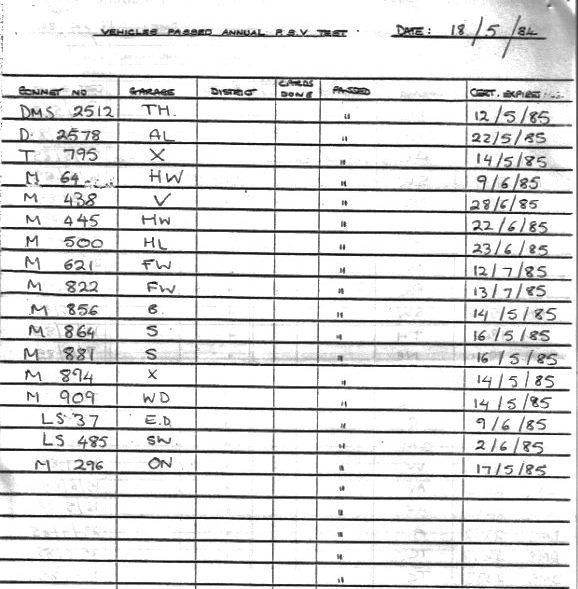 VEHICLES PASSED ANNUAL P.S.V TEST. DATE: 18/5/84
BONNET NO GARAGE DISTRICT CARDS DONE PASSED CERT. EXPIRES
DMS 2512 TH. " 12/5/85
D. 2578 AL " 22/5/85
T 795 X " 14/5/85
M 64 HW " 9/6/85
M 438 V " 28/6/85
M 445 HW " 22/6/85
M 500 HL " 23/6/85
M 621 FW " 12/7/85
M 822 FW " 13/7/85
M 856 B " 14/5/85
M 864 S " 16/5/85
M 881 S " 16/5/85
M 894 X " 14/5/85
M 909 WD " 14/5/85
LS 37 E.D. " 9/6/85
LS 485 SW " 2/6/85
M 296 ON " 17/5/85
"
"
"
"
"